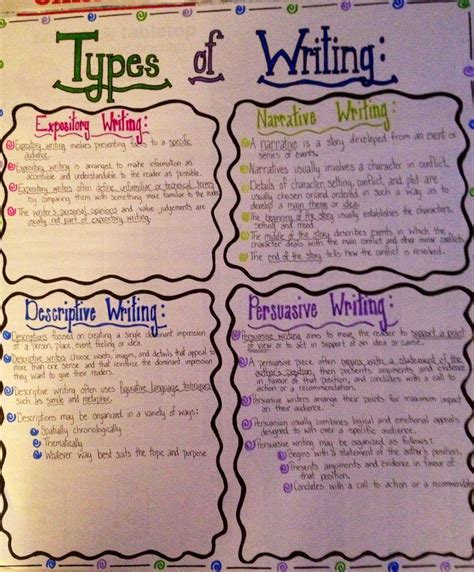 Types of Writing:
Expository Writing:
Expository writing involves presenting to a specific
audience.
Expository writing is arranged to make information as
accessible and understandable to the reader as possible.
Expository writers often define unfamiliar or technical terms
by comparing them with something more familiar to the reader.
The writer's personal opinions and value judgements are
usually not part of expository writing.
Narrative Writing:
A narrative is a story developed from an event or
series of events.
Narratives usually involve a character in conflict.
Details of character, setting, conflict, and plot are
usually chosen and ordered in such a way as to
develop a main theme or idea.
The beginning of the story usually establishes the characters,
setting and mood.
The middle of the story describes events in which the
character deals with the main conflict and other minor conflicts.
The end of the story tells how the conflict is resolved.
Descriptive Writing:
Descriptions focused on creating a single dominant impression
of a person, place, event, feeling or idea.
Descriptive writers choose words, images, and details that appeal to
more than one sense and that reinforce the dominant impression
they want to give their readers.
Descriptive writing often uses figurative language techniques
such as simile and metaphor.
Descriptions may be organized in a variety of ways:
Spatially chronologically
Thematically
Whatever way best suits the topic and purpose
Persuasive Writing:
Persuasive writing aims to move the reader to support a point
of view or to act in support of an idea or cause.
A persuasive piece often begins with a statement of the
author's position, then presents arguments and evidence
in favour of that position, and concludes with a call for
action or a recommendation.
Persuasive writers arrange their points for maximum impact
on their audience.
Persuasion usually combines logical and emotional appeals
designed to win over a specific audience.
Persuasive writing may be organized as follows:
Begins with a statement of the author's position.
Presents arguments and evidence in favour of
that position.
Concludes with a call to action or a